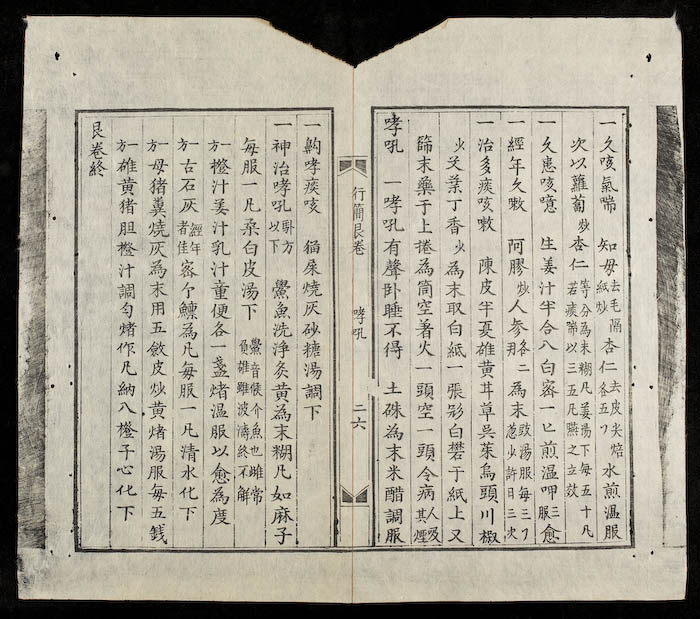 一久咳氣喘 知母去毛隔紙炒杏仁去皮尖焙各五了水煎溫服
次以蘿蔔炒杏仁等分為末糊凡姜湯下每五十凡若痰喘以三五凡燕之立效
一久患咳噫 生姜汁半合入白宻一匕煎溫呷三服愈
一經年久嗽 阿膠炒人參各二為末豉湯服每三了葱少許日三次
一治多痰咳嗽 陳皮半夏雄黃甘草吳茱烏頭川椒
少艾葉丁香少為末取白紙一張白礬于紙上又
篩末藥于上捲為筒空著火一頭空一頭令病人吸其煙
哮吼 一哮吼有聲卧睡不得 土硃為末米醋調服
行簡艮卷 哮吼 二六
一齁哮痰咳 猫屎燒灰砂糖湯調下
一神治哮吼方以下 鱟魚洗淨灸黃為末糊凡如麻子
每服一凡桒白皮湯下 鱟音候介魚也雌常負雄雖波濤終不解
一方橙汁姜汁乳汁童便各一盞煑溫服以愈為度
一方古石灰經年者佳宻煉為凡每服一凡清水化下
一方母猪糞燒灰為末用五斂皮炒黃煑湯服每五錢
一方雄黃猪胆橙汁調勻煑作凡納入橙子心化下
艮卷終